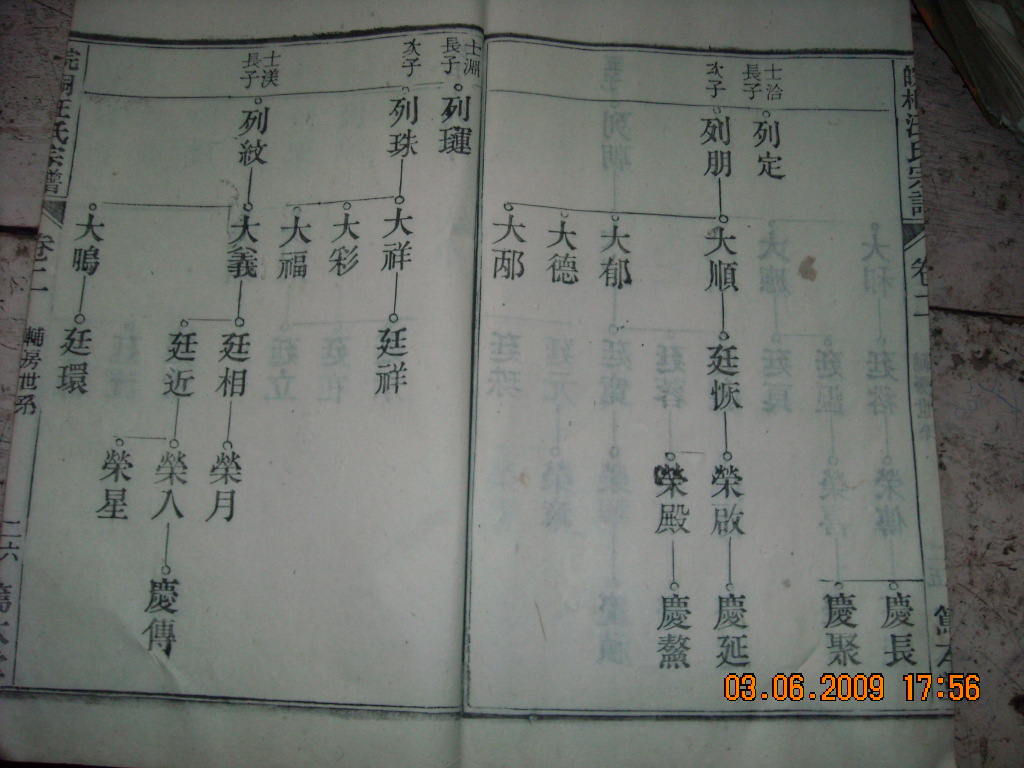 卷二
慶長
慶聚
士洽
長子
列定
次子
列朋
大順
大郁
大德
大邴
廷恢
榮啟
榮殿
慶延
慶鰲
士淵
長子
列璉
次子
列珠
大祥
大彩
大福
廷祥
士渼
長子
列紋
大義
大鴫
廷相
廷近
廷環
榮月
榮入
榮星
慶傳
皖桐汪氏宗譜
卷二
輔房世系
二六
03.06.2009 17:56